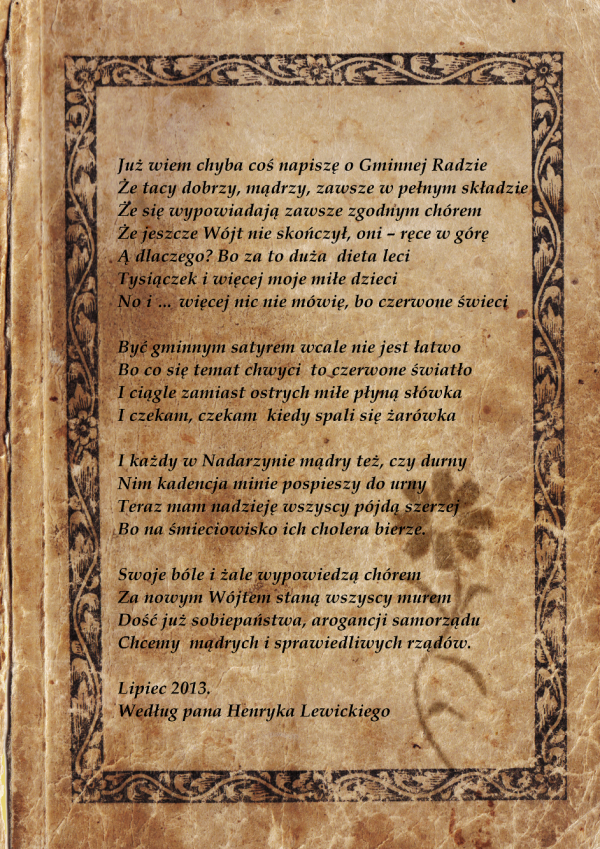 Już wiem chyba coś napiszę o Gminnej Radzie
Że tacy dobrzy, mądrzy, zawsze w pełnym składzie
Że się wypowiadają zawsze zgodnym chórem
Że jeszcze Wójt nie skończył, oni – ręce w górę
Ą dlaczego? Bo za to duża dieta leci
Tysiączek i więcej moje miłe dzieci
No i ... więcej nic nie mówię, bo czerwone świeci
Być gminnym satyrem wcale nie jest łatwo
Bo co się temat chwyci to czerwone światło
I ciągle zamiast ostrych miłe płyną słówka
I czekam, czekam kiedy spali się żarówka
I każdy w Nadarzynie mądry też, czy durny
Nim kadencja minie pospieszy do urny
Teraz mam nadzieję wszyscy pójdą szerzej
Bo na śmieciowisko ich cholera bierze.
Swoje bóle i żale wypowiedzą chórem
Za nowym Wójtem staną wszyscy murem
Dość już sobiepaństwa, arogancji samorządu
Chcemy mądrych i sprawiedliwych rządów.
Lipiec 2013.
Według pana Henryka Lewickiego